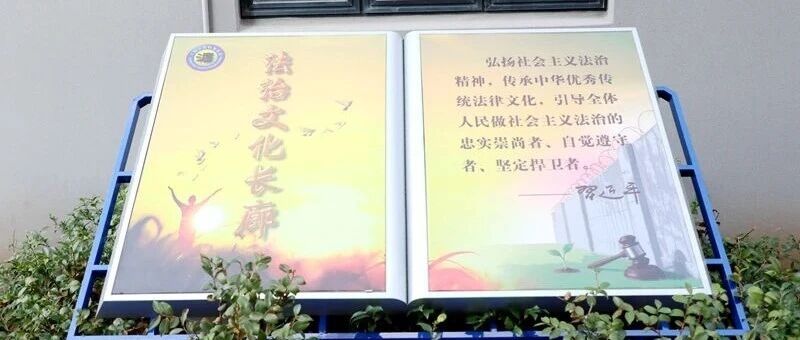 法治文化长廊
弘扬社会主义法治
精神，传承中华优秀传
统法律文化，引导全体
人民做社会主义法治的
忠实崇尚者、自觉遵守
者、坚定捍卫者。
——习近平